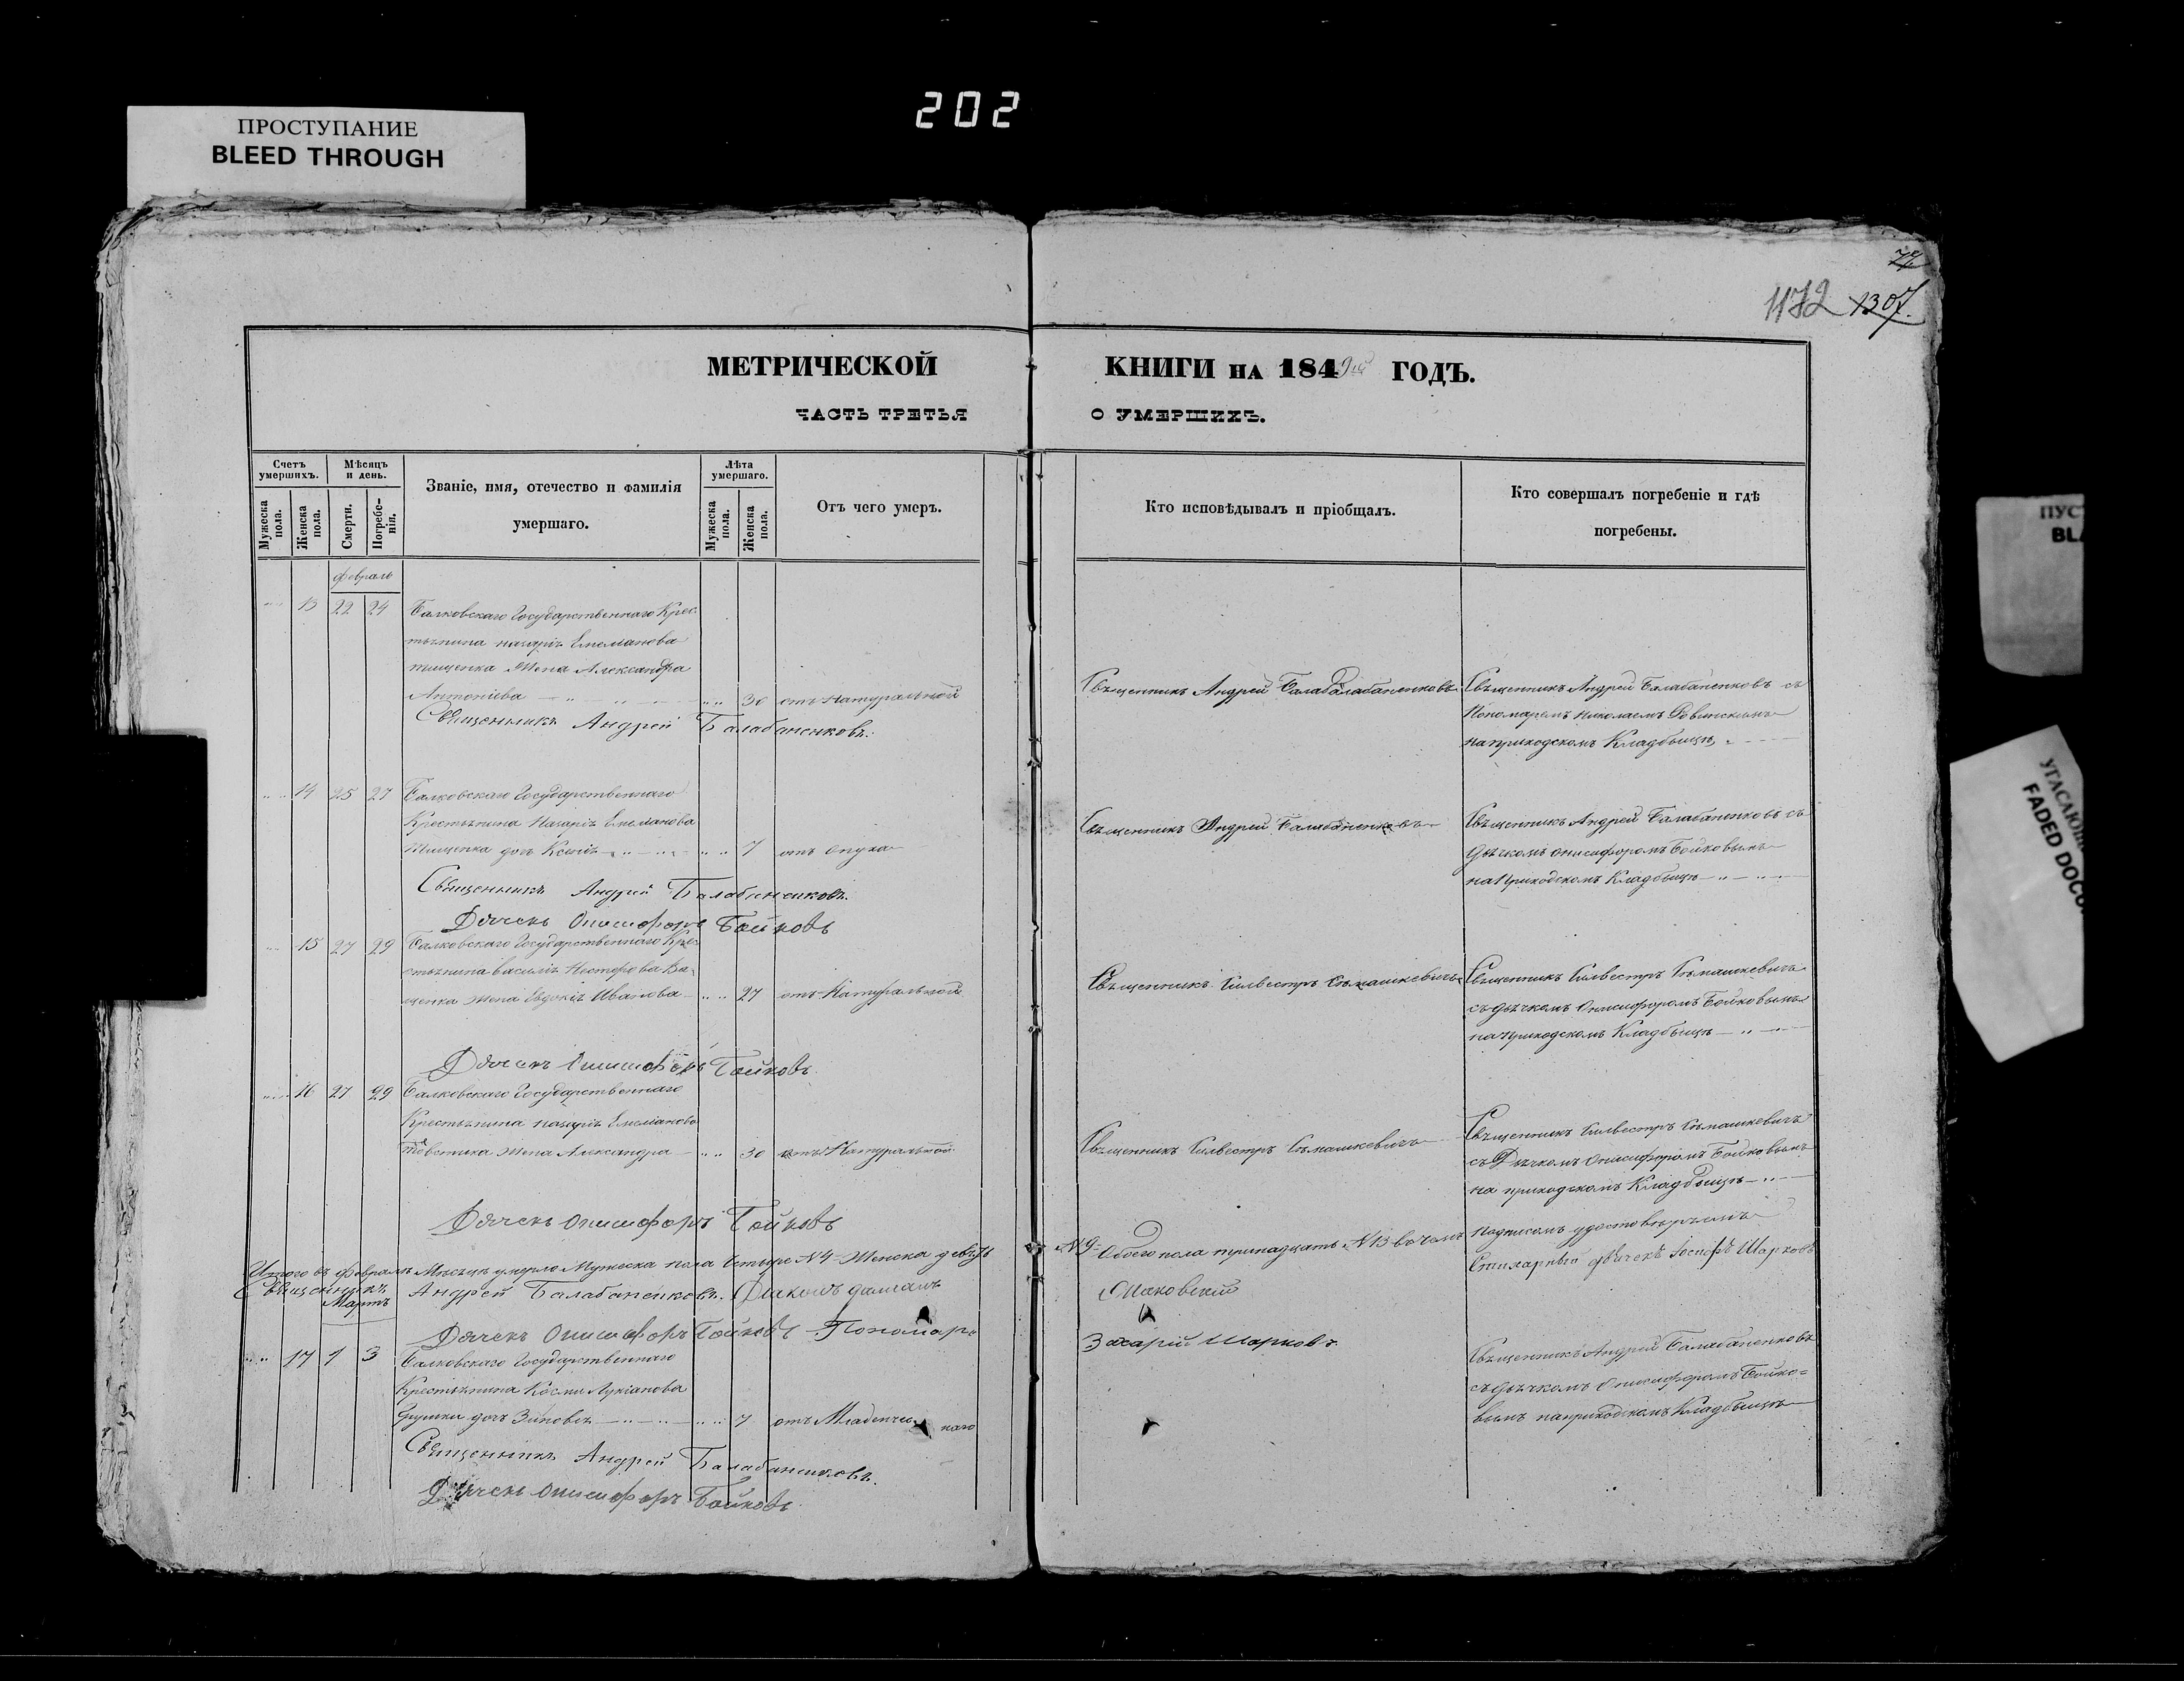 202
ПРОСТУПАНИЕ
BLEED THROUGH
1172 1307.
МЕТРИЧЕСКОЙ КНИГИ НА 1849 ГОДЪ.
ЧАСТЬ ТРЕТЬЯ О УМЕРШИХЪ.
Счетъ умершихъ.
Мужеска пола.
Женска пола.
Мѣсяцъ и день.
Смерти.
Погребенія.
Званіе, имя, отечество и фамилія
умершаго.
Лѣта умершаго.
Мужеска пола.
Женска пола.
Отъ чего умеръ.
Кто исповѣдывалъ и пріобщалъ.
Кто совершалъ погребеніе и гдѣ
погребены.
февраль
13 22 24 Балковскаго Государственнаго Крес
тьянина назарія Емелианова
тищенка Жена Александра
Антоніева 30 отъ Натуральной
Священникъ Андрей Балабаненковъ.
Священникъ Андрей Балабаненковъ съ
Пономаремъ николаемъ
на приходскомъ Кладбищѣ
14 25 27 Балковскаго Государственнаго
Крестьянина Назарія Емелианова
Тищенка дочь Ксенія 7 отъ опуха
Священникъ Андрей Балабаненковъ
Священникъ Андрей Балабаненковъ съ
дячкомъ Онисифоромъ Бойковымъ
на Приходскомъ Кладбищѣ
Священникъ Андрей Балабаненковъ.
Дячекъ Онисифоръ Бойковъ
15 27 29 Балковскаго Государственнаго Кре
стьянина василія Нестерова Ва
щенка Жена Евдокія Иванова 27 отъ Натуральной
Священникъ Силвестръ Сѣмашкевичъ
Священникъ Силвестръ Сѣмашкевичъ
съ дячкомъ Онисифоромъ Бойковымъ
на приходскомъ Кладбищѣ
Дячекъ Онисифоръ Бойковъ
16 27 29 Балковскаго Государственнаго
Крестьянина назарія Емеліанова
Товстика Жена Александра 30 отъ Натуральной
Священникъ Силвестръ Сѣмашкевичъ
Священникъ Силвестръ Сѣмашкевичъ
съ Дячкомъ Онисифоромъ Бойковымъ
на приходскомъ Кладбищѣ
Дячекъ Онисифоръ Бойковъ
Итого въ февралѣ Мѣсяцѣ умерло Мужеска пола Четыре N 4 Женска девять N 9 Обоего пола тринадцать N 13 в чомъ подписомъ удостовѣряемъ
Священникъ Андрей Балабаненковъ.
Стихарный дячекъ Іосифъ Шарковъ
Мартъ
Дячекъ Онисифоръ Бойковъ Пономарь
Захарій Шарковъ
17 1 3 Балковскаго Государственнаго
Крестьянина Косми Лукіанова
дочь Зиновія 7 отъ Младенческаго
Священникъ Андрей Балабаненковъ
съ дячкомъ Онисифоромъ Бойко=
вымъ на приходскомъ Кладбищѣ
Священникъ Андрей Балабаненковъ.
Дячекъ Онисифоръ Бойковъ.
ПУС
BLA
УГАСАЮЩ
FADED DOCU